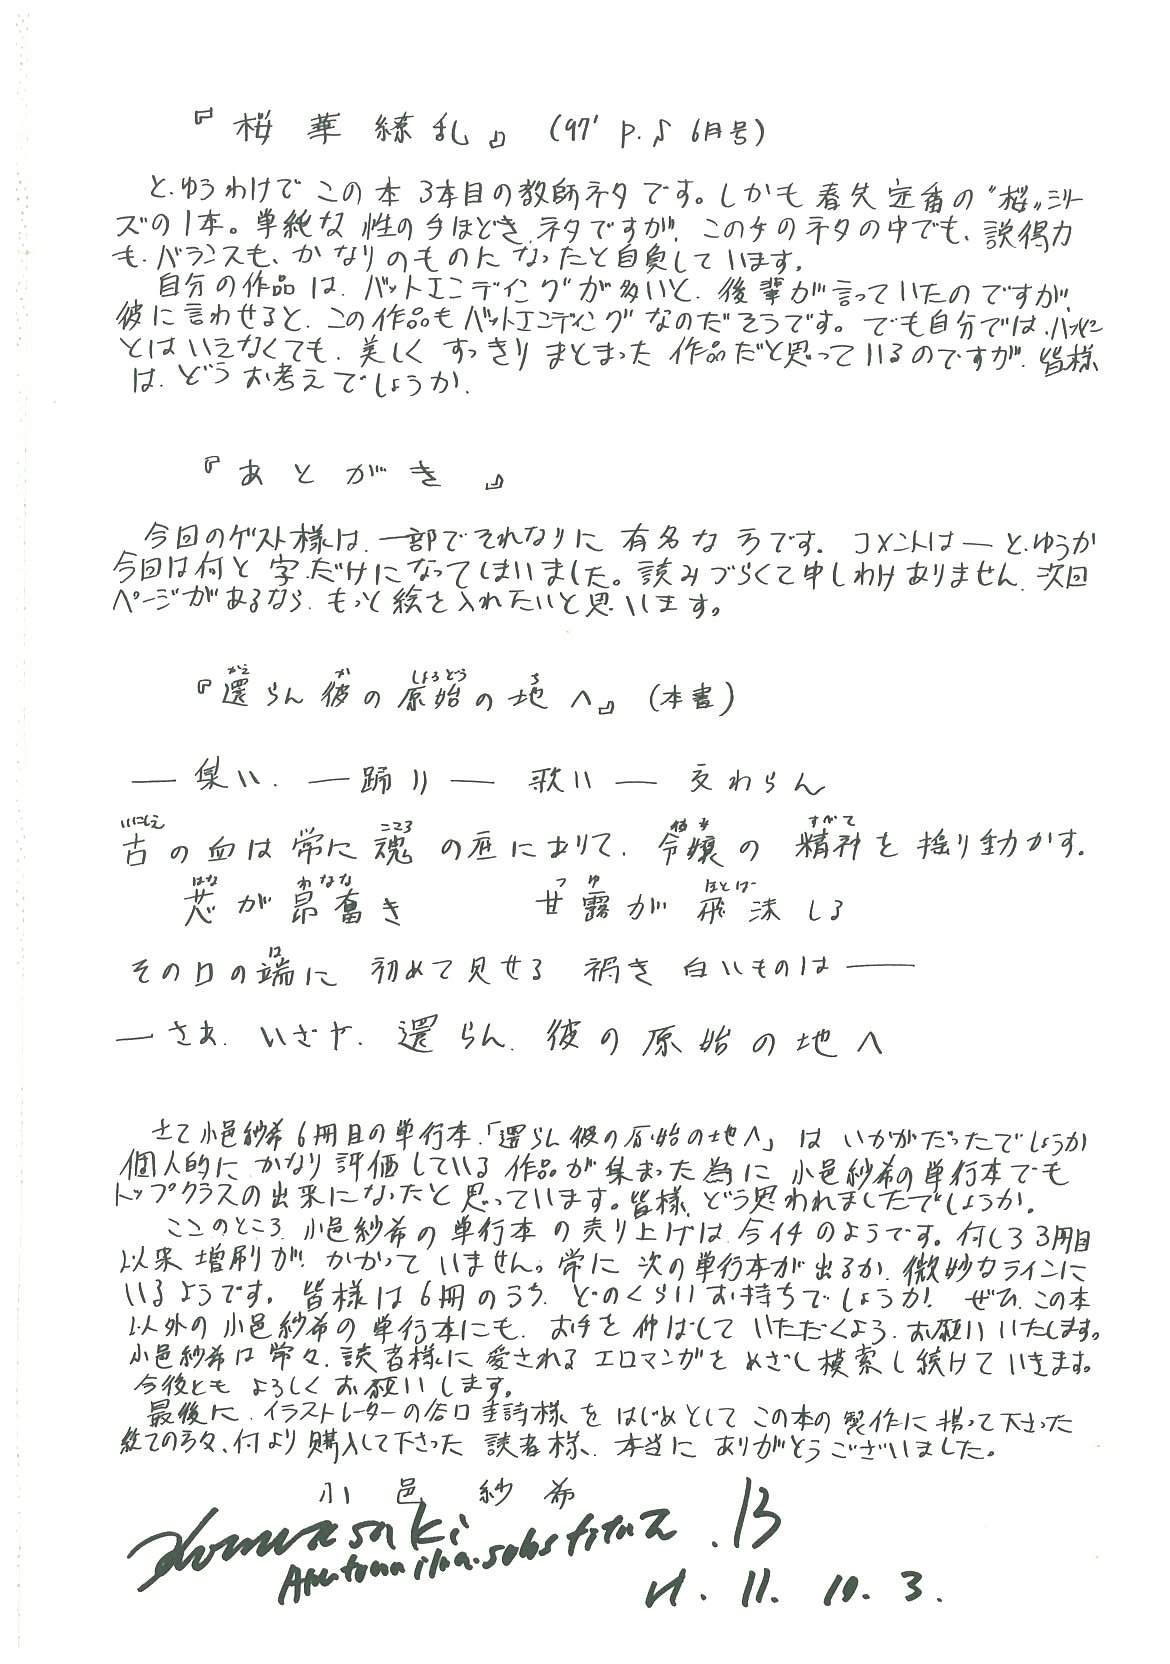 『桜華繚乱』(97' P.♪ 6月号)
と、ゆうわけで この本 3本目の教師ネタです。しかも 春先 定番の"桜"シリー
ズの1本。単純な 性の手ほどき ネタですが、この手のネタの中でも、説得力
も、バランスも、かなりのものになったと自負しています。
自分の作品は、バットエンディングが多いと、後輩が言っていたのですが、
彼に言わせると、この作品もバットエンディングなのだそうです。でも自分では、ハッピー
とはいえなくても、美しく すっきり まとまった 作品だと思っているのですが、皆様
は、どう お考えでしょうか。
『あとがき』
今回のゲスト様は、一部でそれなりに 有名な方です。コメントは― と、ゆうか
今回は何と 字だけになってしまいました。読みづらくて申しわけありません、次回
ページがあるなら、もっと絵を入れたいと思います。
かえ か しょろどう ち
『還らん彼の原始の地へ』(本書)
― 集い、― 踊り ― 歌い ― 交わらん
いにしえ こころ すがて
古の血は常に魂の庭にありて、令嬢の 精神を揺り動かす。
はな わなな つゆ ほとばー
芯が昂奮き 甘露が飛沫しる
口
その口の端に 初めて見せる 禍き 白いものは ――
― さあ、いざや、還らん、彼の原始の地へ
さて小邑紗希6冊目の単行本、「還らん彼の原始の地へ」は いかがだったでしょうか
個人的に かなり評価している 作品が集まった為に 小邑紗希の単行本でも
トップクラスの出来になったと思っています。皆様、どう思われましたでしょうか。
ここのところ、小邑紗希の単行本の売り上げは、今イチのようです。何しろ3冊目
以来 増刷が、かかって いません。常に 次の単行本が出るか、微妙なラインに
いるようです。皆様は6冊のうち、どのくらいお持ちでしょうか! ぜひ、この本
以外の 小邑紗希の 単行本にも、お手を 伸ばして いただくよう、お願い いたします。
小邑紗希は 常々、読者様に 愛される エロマンガを めざし模索し続けていきます。
今後とも よろしく お願いします。
最後に、イラストレーターの谷口圭詩様をはじめとして この本の製作に 携って下さった
総ての方々、何より 購入して下さった 読者様、本当に ありがとうございました。
小邑紗希
.B
H. 11. 10. 3.